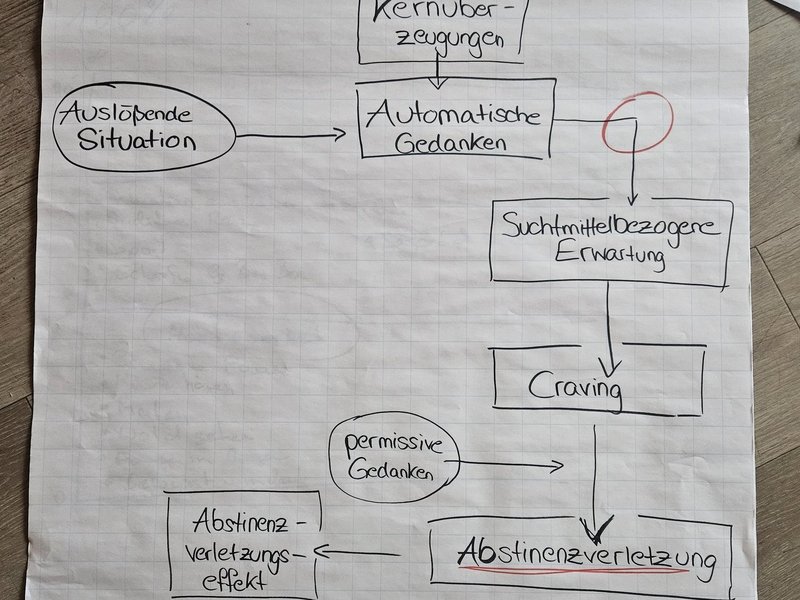 Kernüber-
zeugungen
Auslößende
Situation
Automatische
Gedanken
Suchtmittelbezogene
Erwartung
Craving
permissive
Gedanken
Abstinenz-
verletzungs-
effekt
Abstinenzverletzung